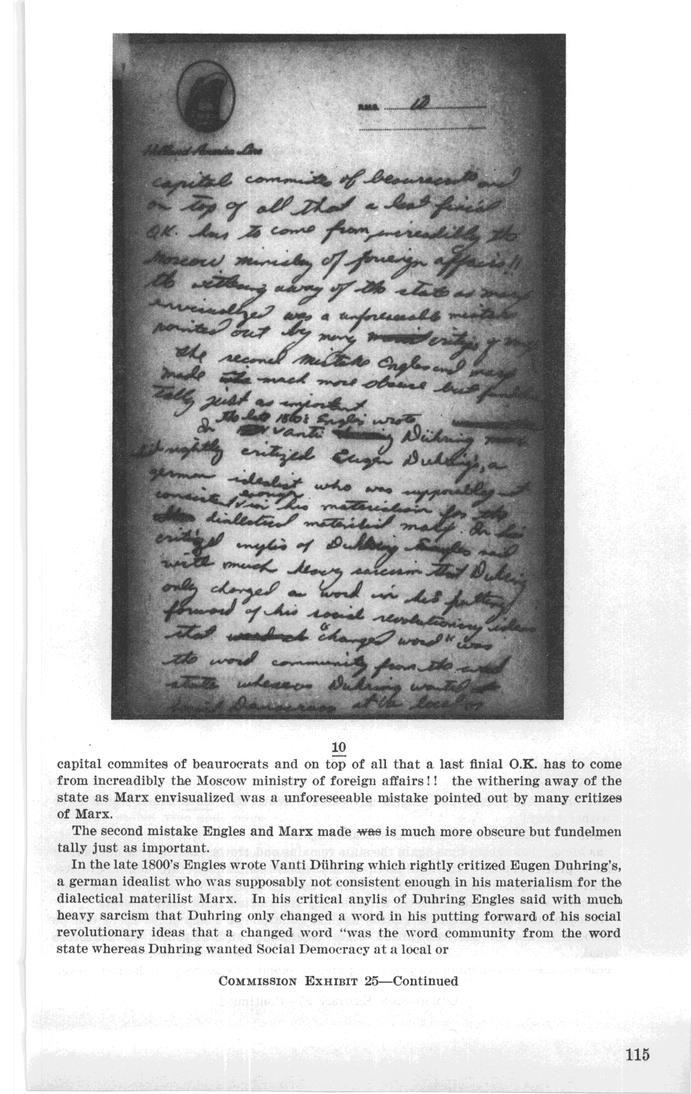 Holland-America Line
R.M.S. 10
capital commites of beaurocrats and
on top of all that a last finial
O.K. has to come from increadibly the
Moscow ministry of foreign affairs!!
the withering away of the state as Marx
envisualized was a unforeseeable mistake
pointed out by many critizes of Marx
The second mistake Engles and Marx
made was is much more obscure but fundelmen
tally just as important
In the late 1800's Engles wrote
Vanti Dühring
rightly critized Eugen Duhring's, a
german idealist who was supposably not
consistent enough in his materialism for the
dialectical materilist Marx. In his
critical anylis of Duhring Engles said
with much heavy sarcism that Duhring
only changed a word in his putting
forward of his social revolutionary ideas
that "changed word" was
the word community from the word
state whereas Duhring wanted
Social Democracy at a local or
10
capital commites of beaurocrats and on top of all that a last finial O.K. has to come
from increadibly the Moscow ministry of foreign affairs!! the withering away of the
state as Marx envisualized was a unforeseeable mistake pointed out by many critizes
of Marx.
The second mistake Engles and Marx made was is much more obscure but fundelmen
tally just as important.
In the late 1800's Engles wrote Vanti Dühring which rightly critized Eugen Duhring's,
a german idealist who was supposably not consistent enough in his materialism for the
dialectical materilist Marx. In his critical anylis of Duhring Engles said with much
heavy sarcism that Duhring only changed a word in his putting forward of his social
revolutionary ideas that a changed word "was the word community from the word
state whereas Duhring wanted Social Democracy at a local or
COMMISSION EXHIBIT 25—Continued
115